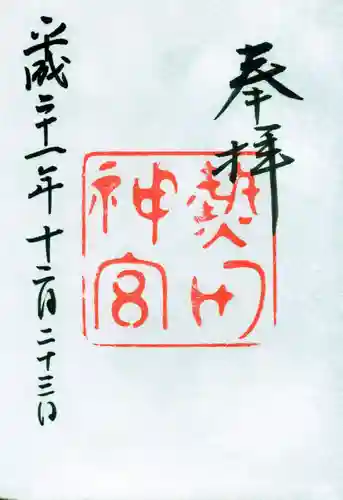 奉拝
熱田
神宮
平成二十一年十二月二十三日